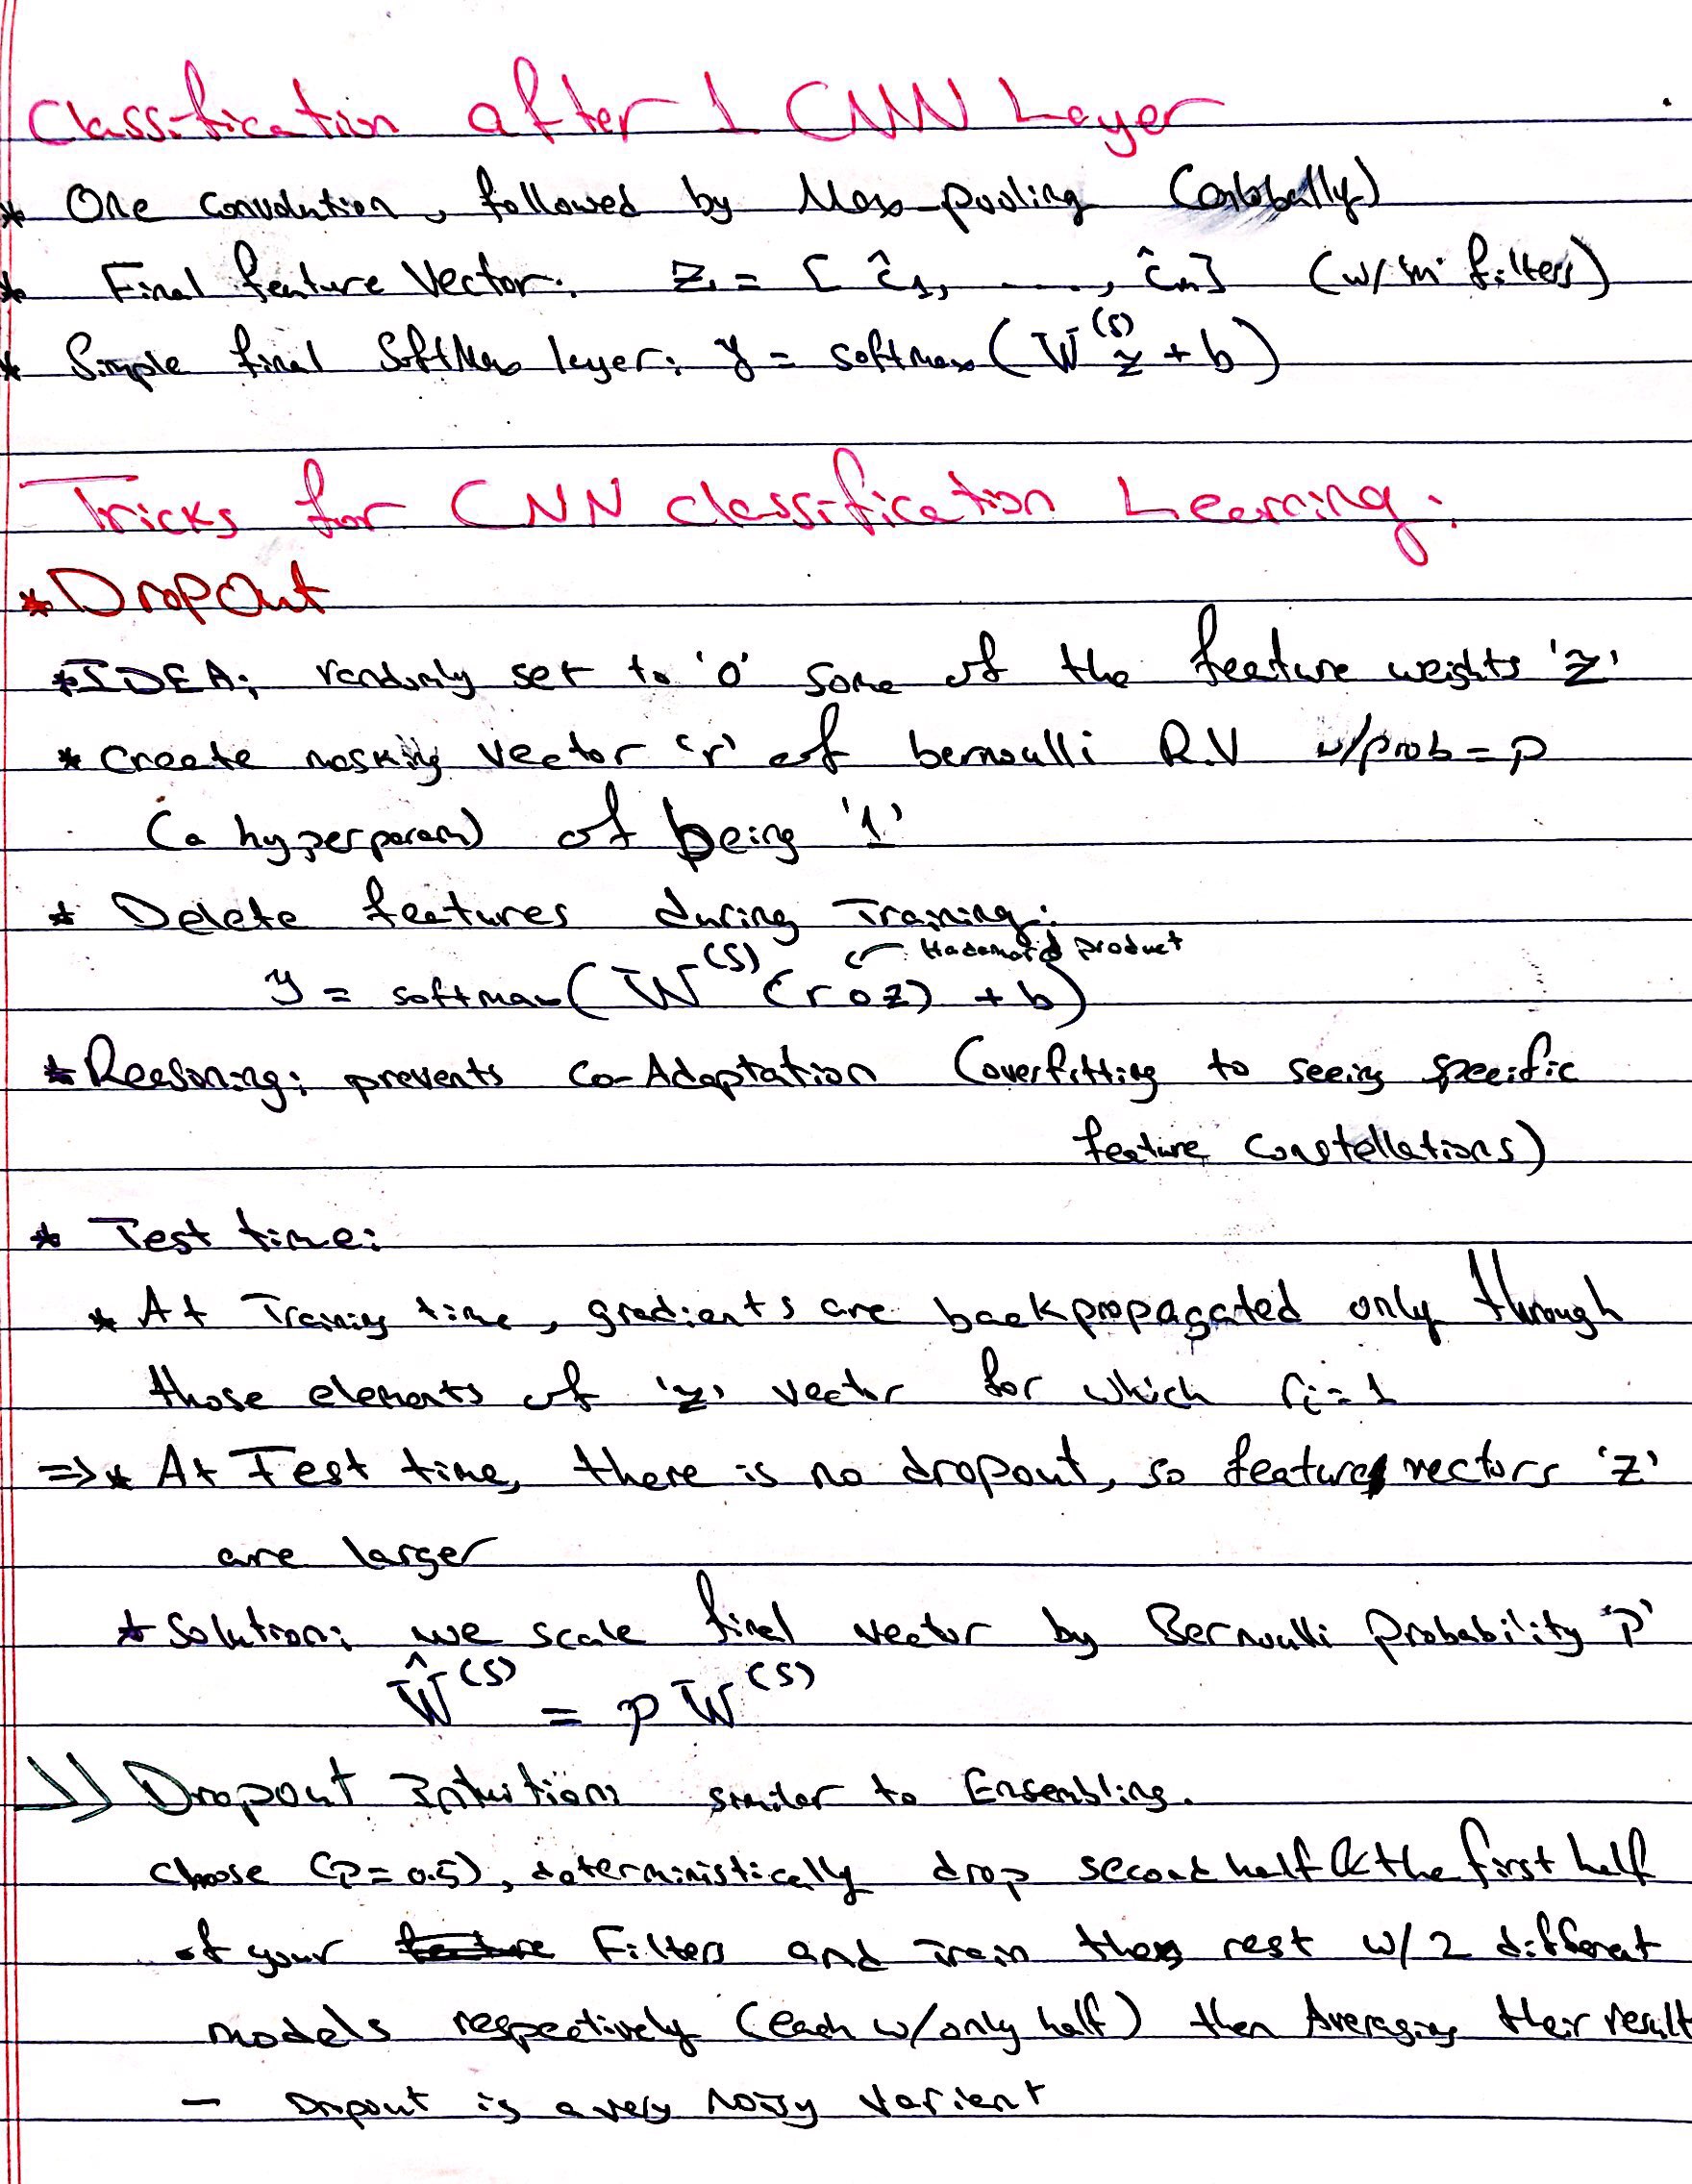 Classification after 1 CNN Layer
* One convolution, followed by Max-pooling (Globally)
* Final feature Vector: z = [ ĉ₁, ...., ĉₘ] (w/ 'm' filters)
* Simple final SoftMax layer: y = softmax( W^(S) z + b )
Tricks for CNN classification Learning:
* DropOut
* IDEA: randomly set to '0' some of the feature weights 'z'
* Create masking vector 'r' of bernoulli R.V w/prob = p
(a hyperparam) of being '1'
* Delete features during Training:
← Hadamard product
y = softmax( W^(S) (r ∘ z) + b )
* Reasoning: prevents Co-Adaptation (overfitting to seeing specific
feature constellations)
* Test time:
* At Training time, gradients are backpropagated only through
those elements of 'z' vector for which rᵢ = 1
=> * At Test time, there is no dropout, so feature vectors 'z'
are larger
* Solution: we scale final vector by Bernoulli Probability 'P'
Ŵ^(S) = p W^(S)
>> Dropout Intuition: similar to Ensembling.
choose (P = 0.5), deterministically drop second half & the first half
of your Filters and Train the rest w/ 2 different
models respectively (each w/only half) then Averaging their result
- Dropout is a very noisy varient